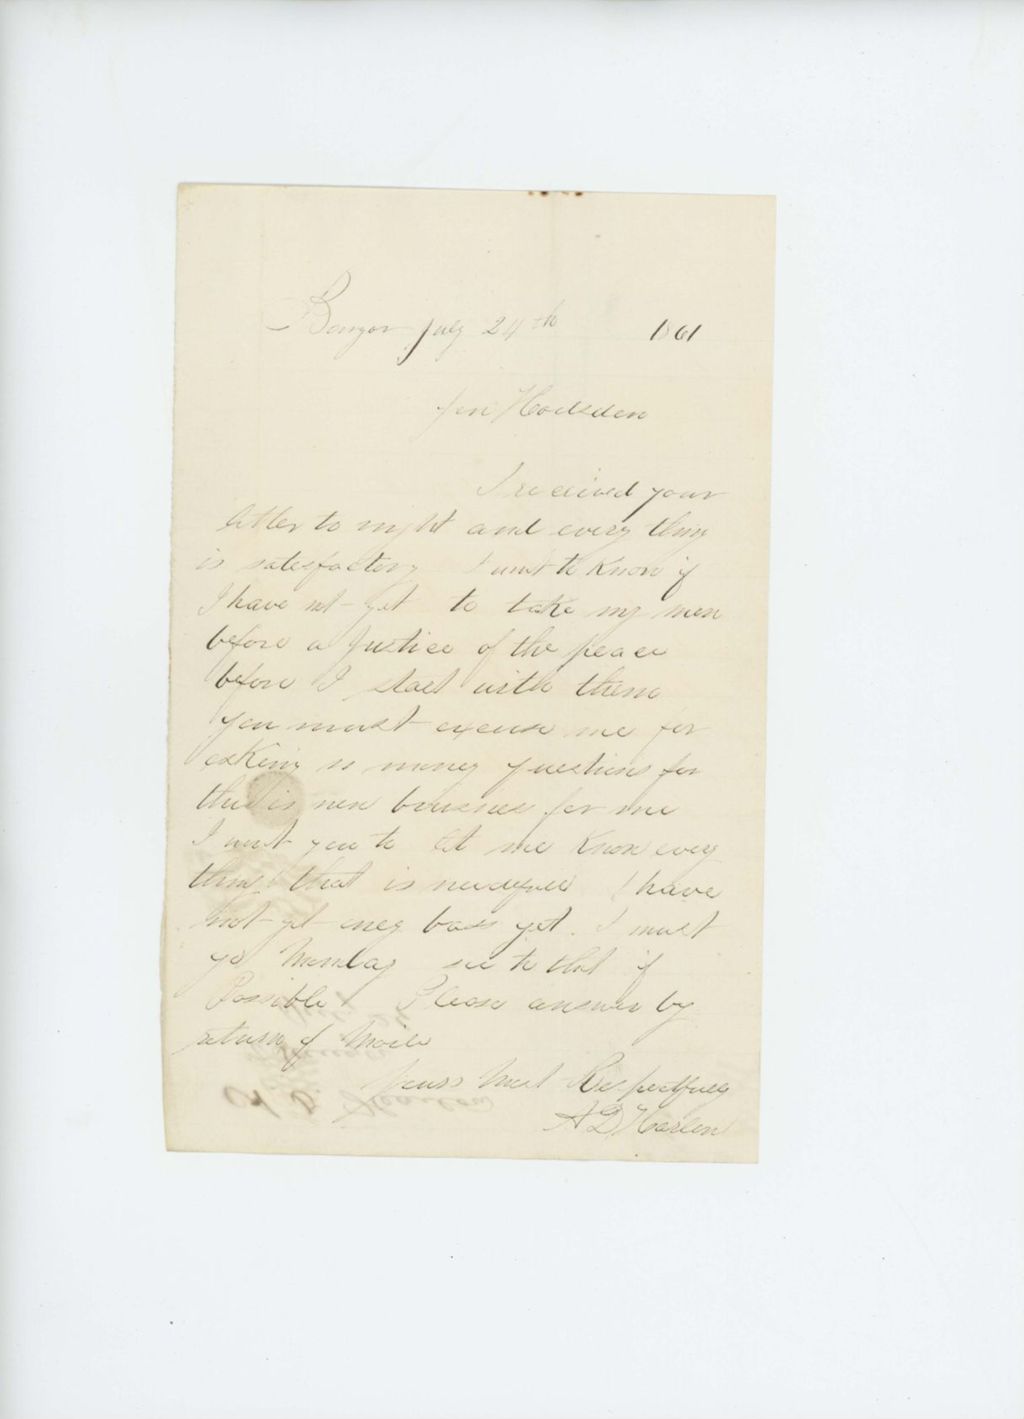 Bangor July 24th 1861
Gen Hodsden
I received your
letter to night and every thing
is satesfactory I want to know if
I have not get to take my men
before a Justice of the peace
before I start with them
You must excuse me for
asking so maney questions for
this is new buisness for me
I want you to let me know every
thing that is needfull I have
not get eney boss yet. I must
go Monday see to that if
Possible Please answer by
return of Maile
Yours Most Respectfully
A D Harlon